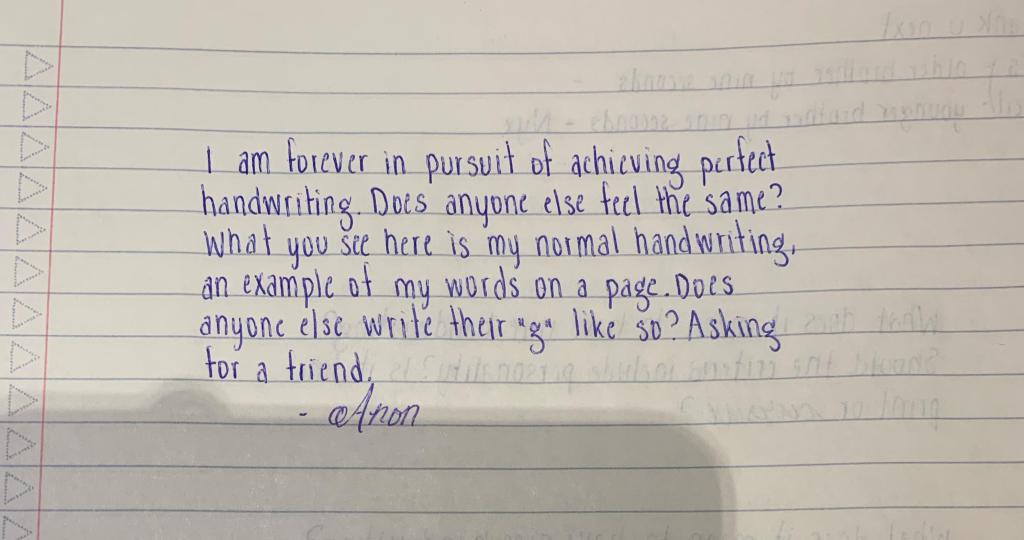 I am forever in pursuit of achieving perfect
handwriting. Does anyone else feel the same?
What you see here is my normal handwriting,
an example of my words on a page. Does
anyone else write their "g" like so? Asking
for a friend.
- Anon